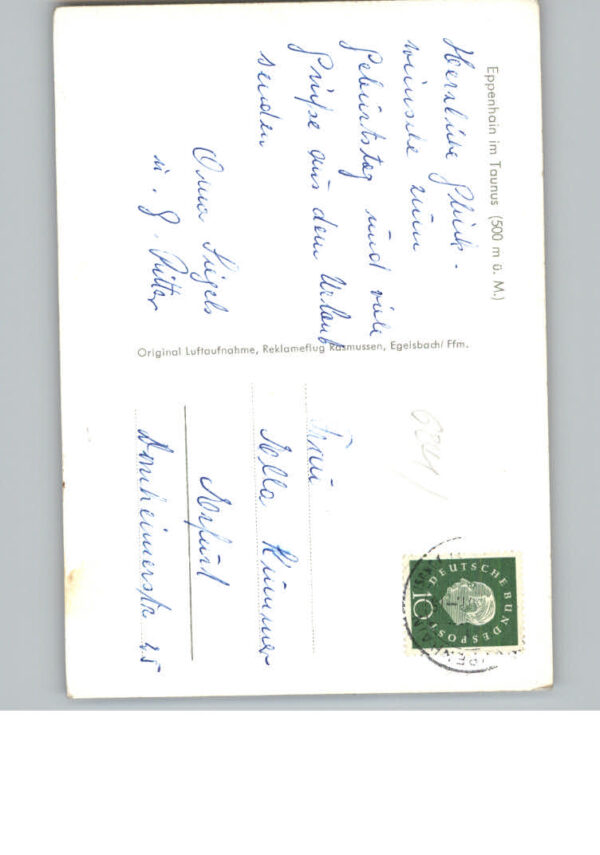 Eppenhain im Taunus (500 m ü. M.)
Herzliche Glück-
wünsche zum
Geburtstag und viele
Grüße aus dem Urlaub
senden
Oma
u. G. Ritter
Original Luftaufnahme, Reklameflug Rasmussen, Egelsbach/Ffm.
6241/
DEUTSCHE BUNDESPOST
10
Frau
Kümmer
Erfurt
Arnheimerstr 25